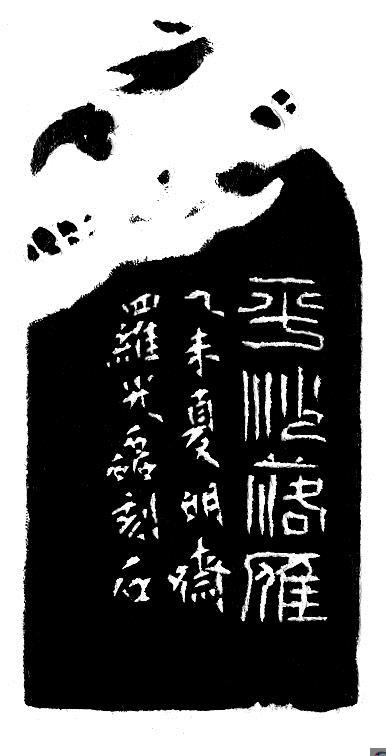 平沙落雁
乙未夏明嘯
羅光磊刻石